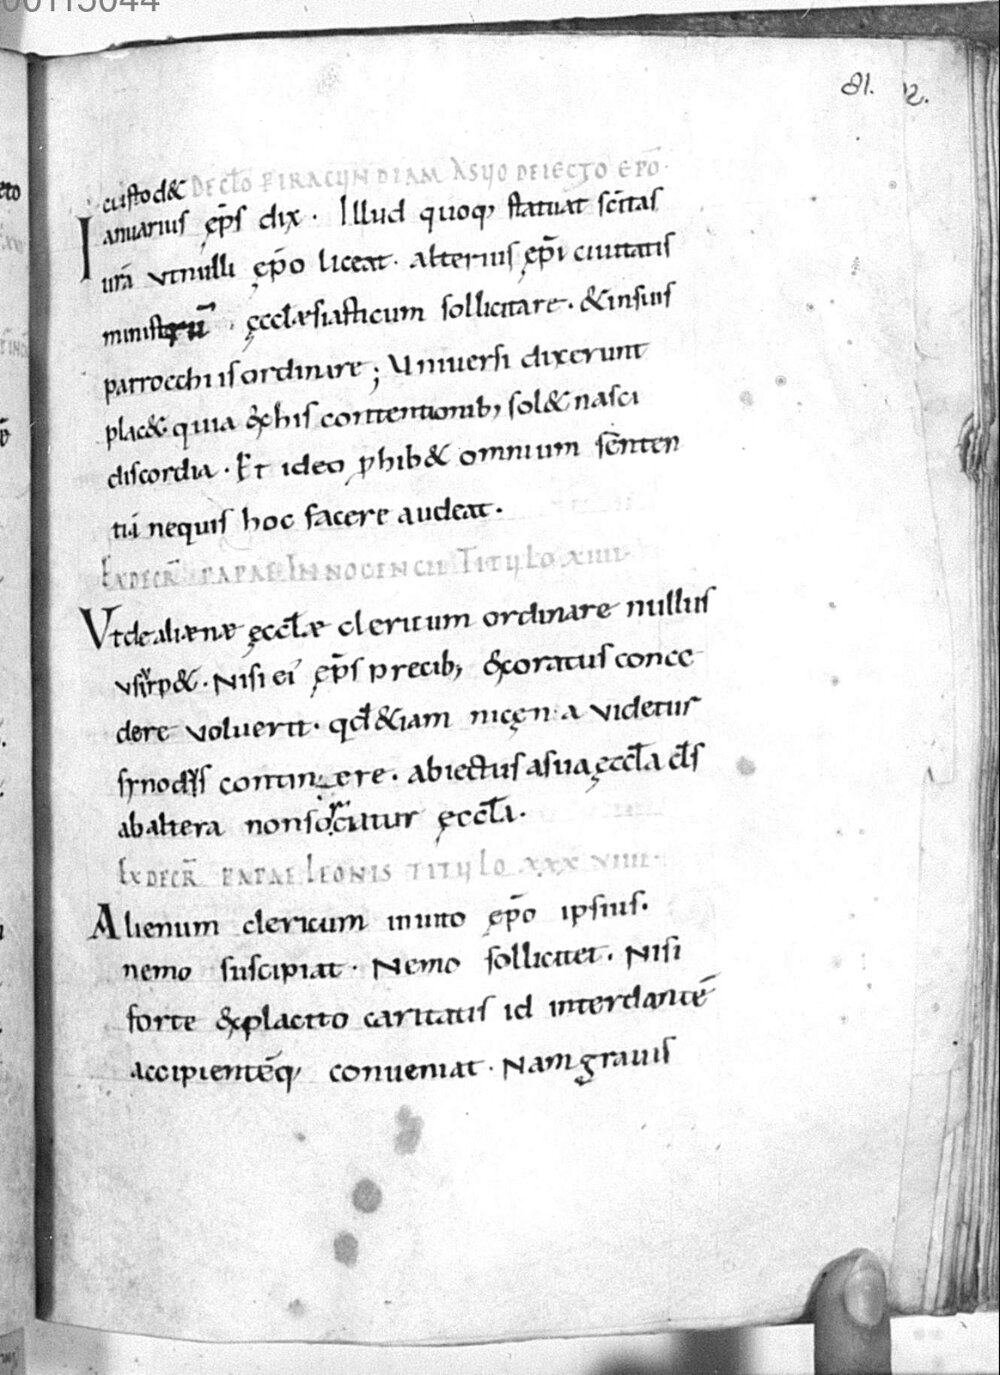 00115044
81. 12.
custod& DECTO P IRACUNDIAM A SUO DEIECTO EPO.
Ianuarius ęps dix. Illud quoq, statuat scitas
urā ut nulli ępo liceat. alterius ępi ciuitatis
ministrū ęcclæsiasticum sollicitare. & insuis
parrochiis ordinare; Uniuersi dixerunt
plac& quia &his contentionib, sol& nasci
discordia. Et ideo phib& omnium senten
tia nequis hoc facere audeat.
EX DECR PAPAE INNOCENCII TITULO XIIII.
Ut de alienæ ęcclæ clericum ordinare nullus
usurp&. Nisi ei ęps precib, exoratus conce
dere voluerit. qd &iam nicęna videtur
synodus continere. abiectus a sua ęccła cłs
ab altera non sociatur ęccła.
EX DECR PAPAE LEONIS TITULO XXXVIIII.
Alienum clericum inuito ępo ipsius.
nemo suscipiat. Nemo sollicitet. Nisi
forte ex placito caritatis id inter dantē
accipientēq, conueniat. Nam grauis